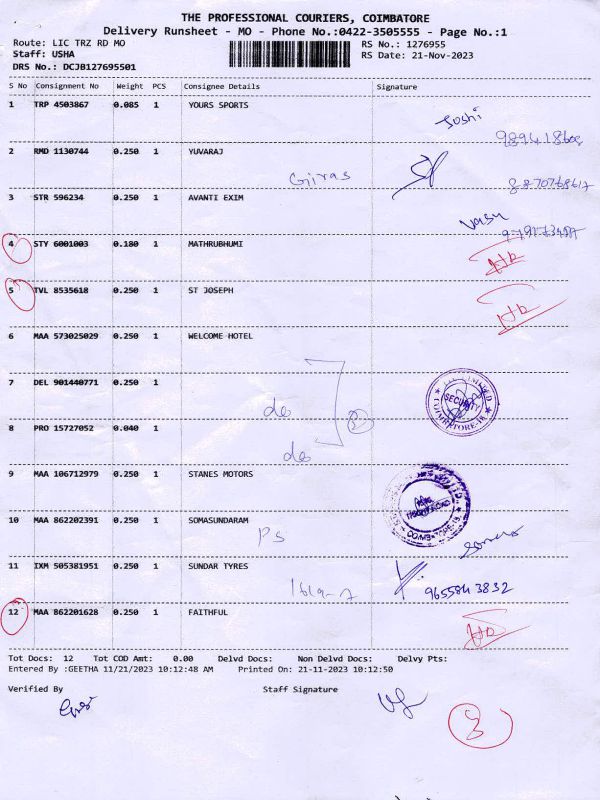 THE PROFESSIONAL COURIERS, COIMBATORE
Delivery Runsheet - MO - Phone No.:0422-3505555 - Page No.:1
Route: LIC TRZ RD MO RS No.: 1276955
Staff: USHA RS Date: 21-Nov-2023
DRS No.: DCJB127695501
S No Consignment No Weight PCS Consignee Details Signature
1 TRP 4503867 0.085 1 YOURS SPORTS
Joshi
2 RMD 1130744 0.250 1 YUVARAJ
3 STR 596234 0.250 1 AVANTI EXIM
Vasu
4 STY 6001003 0.180 1 MATHRUBHUMI
5 TVL 8535618 0.250 1 ST JOSEPH
6 MAA 573025029 0.250 1 WELCOME HOTEL
7 DEL 901440771 0.250 1
do
SECURITY
COIMBATORE-18
8 PRO 15727052 0.040 1
do
9 MAA 106712979 0.250 1 STANES MOTORS
10 MAA 862202391 0.250 1 SOMASUNDARAM
PS
11 IXM 505381951 1 0.250 SUNDAR TYRES
9655843832
12 MAA 862201628 0.250 1 FAITHFUL
Tot Docs: 12 Tot COD Amt: 0.00 Delvd Docs: Non Delvd Docs: Delvy Pts:
Entered By :GEETHA 11/21/2023 10:12:48 AM Printed On: 21-11-2023 10:12:50
Verified By Staff Signature
3